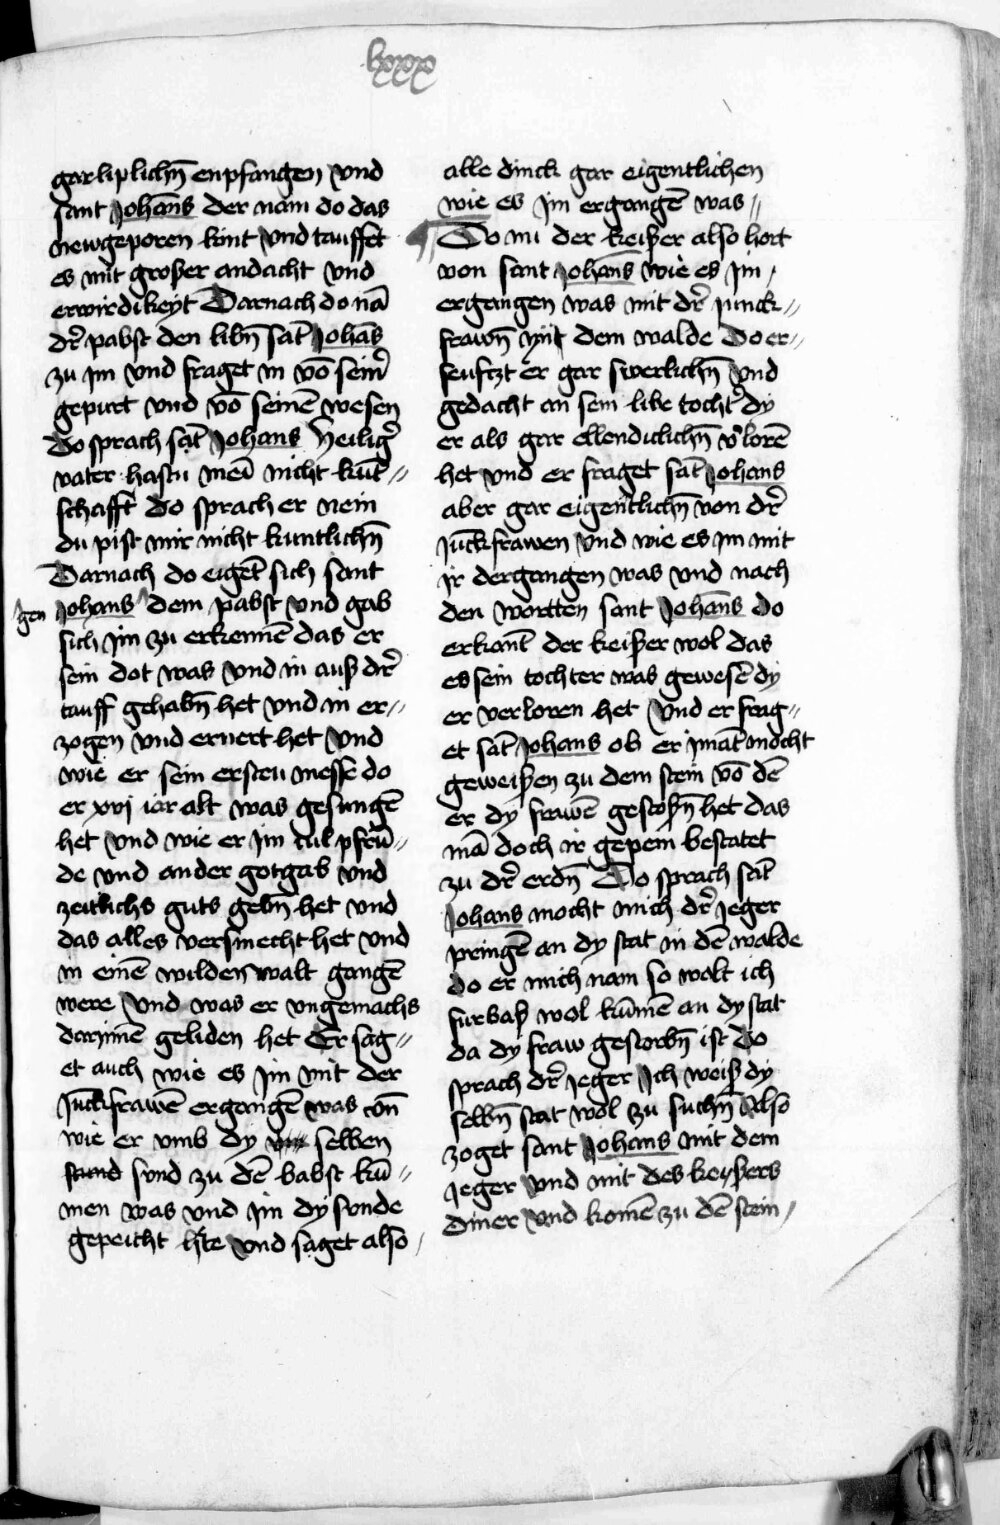 lxxx
gar liplichn̄ enpfangen vnd
sant Johans der nam do das
newgeporen kint vnd tauffet
es mit großer andacht vnd
erwirdikeyt Darnach do nā
dr̄ pabst den libn̄ sāt Johās
zu jm vnd fraget in vō seinr̄
gepurt vnd vō seinē wesen
do sprach sāt Johans Heiligr̄
vater hastu mei nicht kūt//
schafft do sprach er nein
du pist mir nicht kuntlichn̄
Darnach do eiget sich sant
gen Johans dem pabst vnd gab
sich jm zu erkennē das er
sein dot was vnd in auß dr̄
tauff gehabn̄ het vnd in er//
zogen vnd ernert het vnd
wie er sein ersten messe do
er xvj iar alt was gesungē
het vnd wie er jm tzil pfrū//
de vnd ander gotgab vnd
zeitlichs guts gebn̄ het vnd
das alles versmecht het vnd
in einē wilden walt gangē
were vnd was er vngemachs
dorinnē geliden het Er sag//
et auch wie es jm mit der
Juckfrawē ergangē was vn̄
wie er vmb dy selben
sund zu dē babst kū//
men was vnd jm dy sunde
gepeicht hte vnd saget also
alle dinck gar eigentlichen
wie es jm ergangē was//
Do nu der keißer also hort
von sant Johans wie es jm
ergangen was mit dr̄ junck//
frawn̄ ynt dem walde Do er//
seuftzt er gar swerlichn̄ vnd
gedacht an sein libe tochtr̄ dy
er als gar ellendiclichn̄ v̄lorē
het vnd er fraget sāt Johans
aber gar eigentlichn̄ von dr̄
Juckfrawen vnd wie es jm mit
jr dergangen was vnd nach
den wortten sant Johans do
erkant der keißer wol das
es sein tochter was gewesē dy
er verloren het vnd er frag//
et sāt Johans ob er jmāt mocht
geweißen zu dem stein vō dē
er dy frawē gestoßn̄ het das
mā doch ir gepein bestatet
zu dr̄ erdn̄ Do sprach sāt
Johans mocht mich dr̄ Jeger
pringē an dy stat in dē walde
do er mich nam so wolt ich
furbaß wol kūmē an dy stat
da dy fraw gestorbn̄ ist do
sprach dr̄ Jeger Ich weiß dy
selbn̄ stat wol zu suchn̄ Also
zoget sant Johans mit dem
Jeger vnd mit des keyßers
diner vnd komē zu dē stein